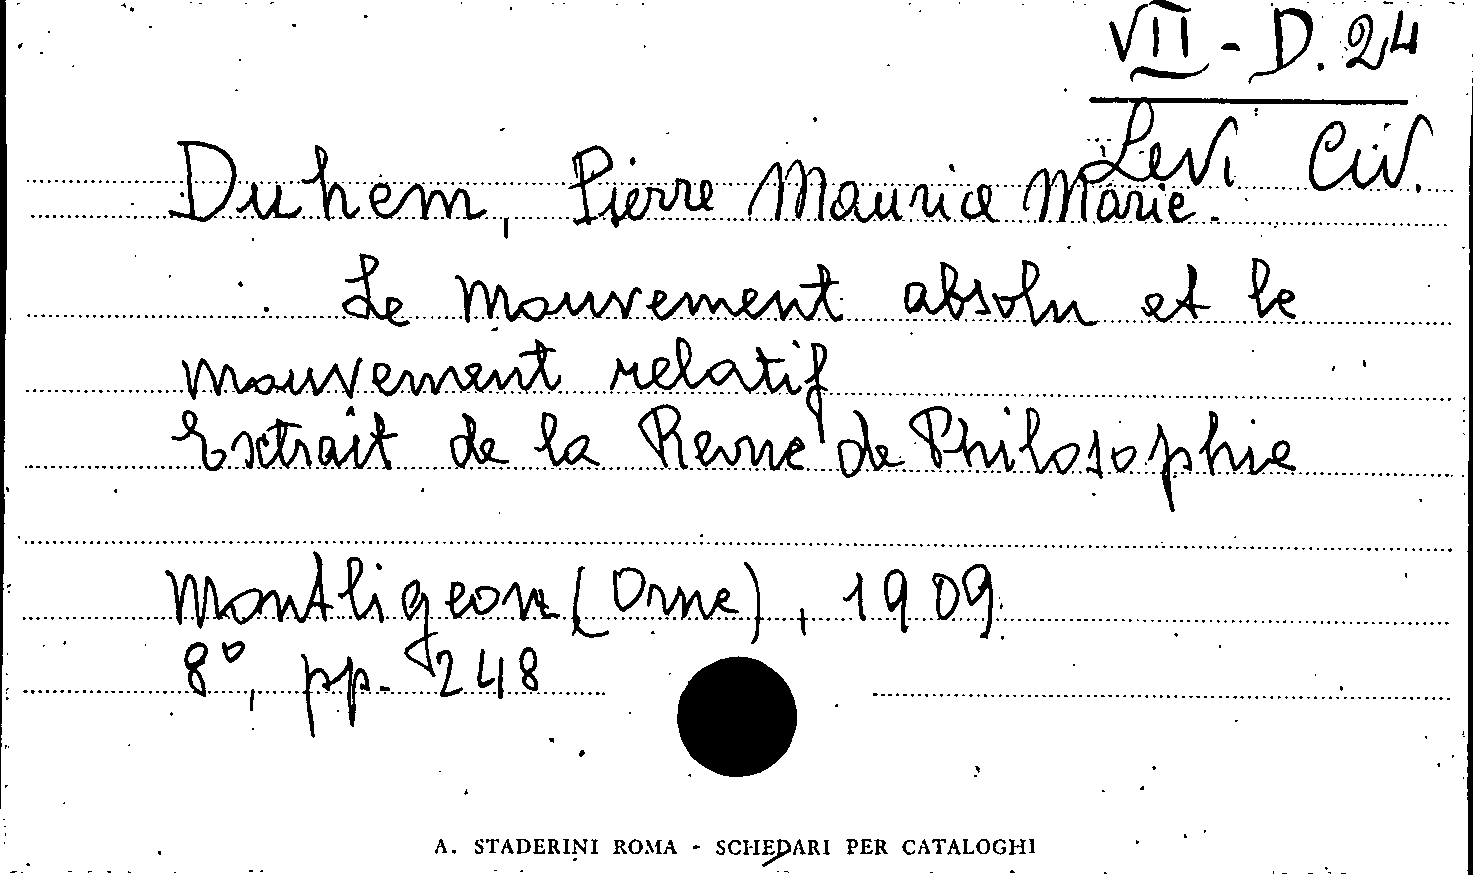 VII - D. 24
Levi Civ.
Duhem, Pierre Maurice Marie.
Le mouvement absolu et le
mouvement relatif
Extrait de la Revue de Philosophie
Montligeon (Orne), 1909
8°, pp. 248
A. STADERINI ROMA - SCHEDARI PER CATALOGHI